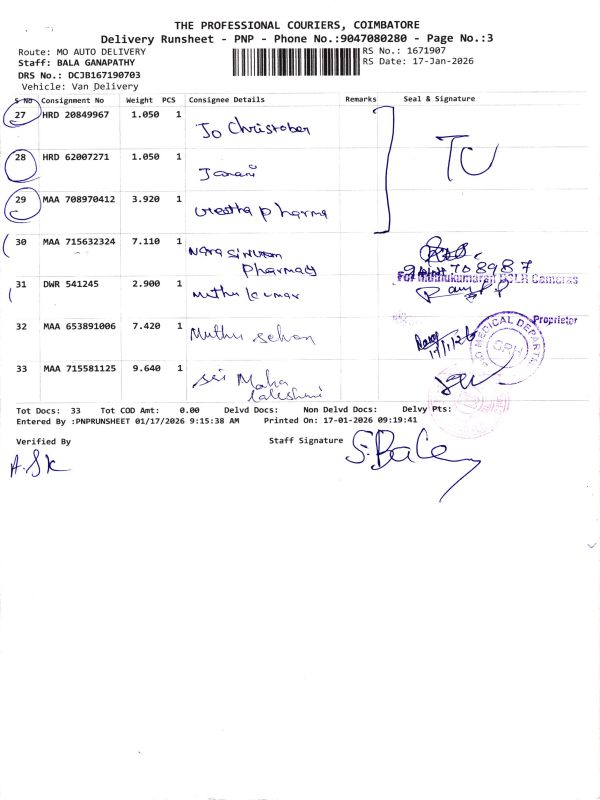 THE PROFESSIONAL COURIERS, COIMBATORE
Delivery Runsheet - PNP - Phone No.:9047080280 - Page No.:3
Route: MO AUTO DELIVERY
RS No.: 1671907
Staff: BALA GANAPATHY
RS Date: 17-Jan-2026
DRS No.: DCJB167190703
Vehicle: Van Delivery
S No Consignment No Weight PCS Consignee Details Remarks Seal & Signature
27 HRD 20849967 1.050 1 Jo Christober
28 HRD 62007271 1.050 1 Janani
29 MAA 708970412 3.920 1 pharma
30 MAA 715632324 7.110 1 Narasimman
Pharmacy
For Muthukumaran DSLR Cameras
31 DWR 541245 2.900 1 Muthu kumar
Proprietor
32 MAA 653891006 7.420 1 Muthu selvan
17/1/26
MEDICAL DEPARTM
GRH
33 MAA 715581125 9.640 1 Sri Maha
Lakshmi
Tot Docs: 33 Tot COD Amt: 0.00 Delvd Docs: Non Delvd Docs: Delvy Pts:
Entered By :PNPRUNSHEET 01/17/2026 9:15:38 AM Printed On: 17-01-2026 09:19:41
Verified By
Staff Signature
S. Bala